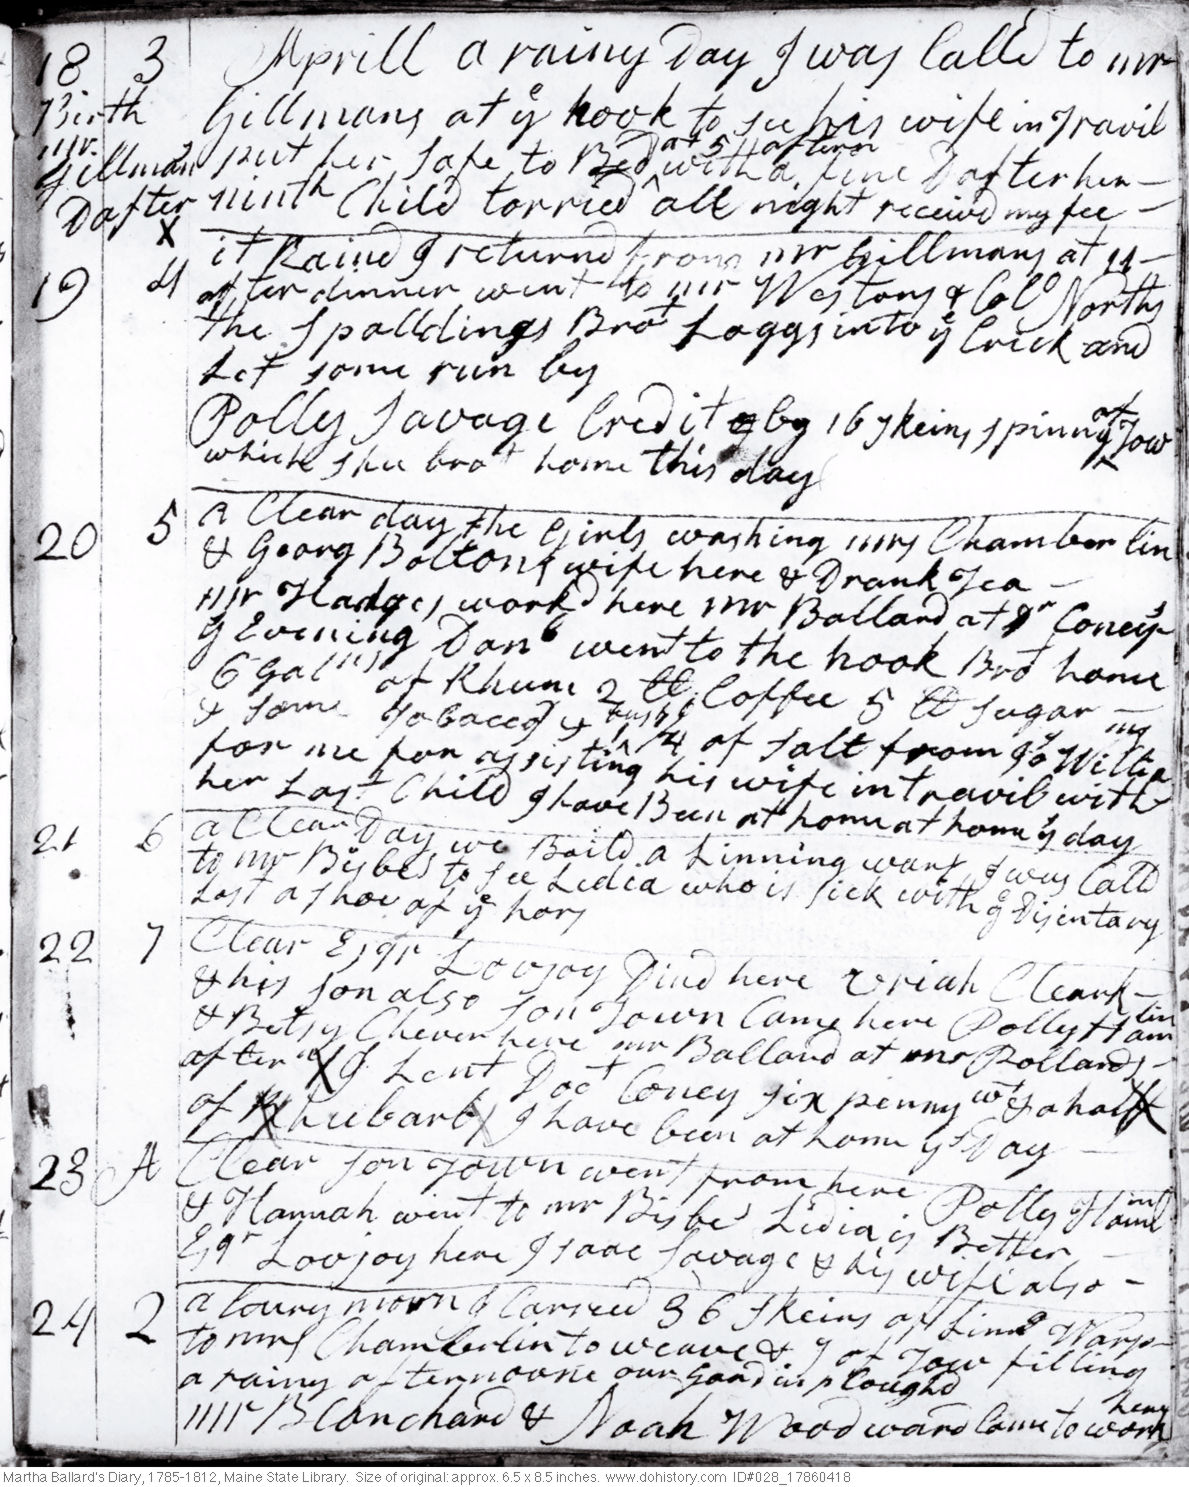 18 3 Aprill a rainy Day I was Calld to mr
Birth Gillmans at ye hook to see his wife in Travil
mr Gillmans put her safe to Bed with a fine Dafter her
at 5 aftern
Dafter X ninth Child torried all night receivd my fee
19 4 it Raind I returned from mr Gillmans at 11
after dinner went to mr Westons & Colo Norths
the Spalldings Brot Loggs into ye Crick and
Let some run by
Polly Savage Credit by 16 skeins spinng of Tow
which shee brot home this day
20 5 a Clear day the Girls washing mrs Chamberlin
& Georg Boltons wife here & Drank Tea
mr Hadges workd here mr Ballard at Dr Coneys
ye Evening Danl went to the hook Bro home
6 Galns of Rhum 2 lb Coffee 5 lb Sugar
& some Tobacco & bush 1/4 of salt from Jos Willia ms
for me for assisting his wife in travil with
her Last Child I have Been at home at home ys day
21 6 a Clear Day we Boild a Linning warp I was Calld
to mr Bisbes to see Lidia who is sick with ye Disentary
Lost a shoe of ye hors
22 7 Clear Esqr Lovjoy Dind here Uriah Cleark
& his son also son Town Came here Polly Ham lin
& Betsy Chever here mr Ballard at mr Pollards
aftern X I Lent Doct Coney six penny wt & a half X
of Rhubarb I have been at home ys Day
23 A Clear son Town went from here Polly Ham lin
& Hannah went to mr Bisbes Lidia is Better
Esqr Lovjoy here Isaac Savage & his wife also
24 2 a loury morn I Carried 36 Skeins of Linn Warp
to mrs Chamberlin to weave & 9 of Tow filling
a rainy afternoone our gardin ploughd
mr Blanchard & Noah Woodward Came to work here
Martha Ballard's Diary, 1785-1812, Maine State Library. Size of original: approx. 6.5 x 8.5 inches. www.dohistory.com ID#028_17860418